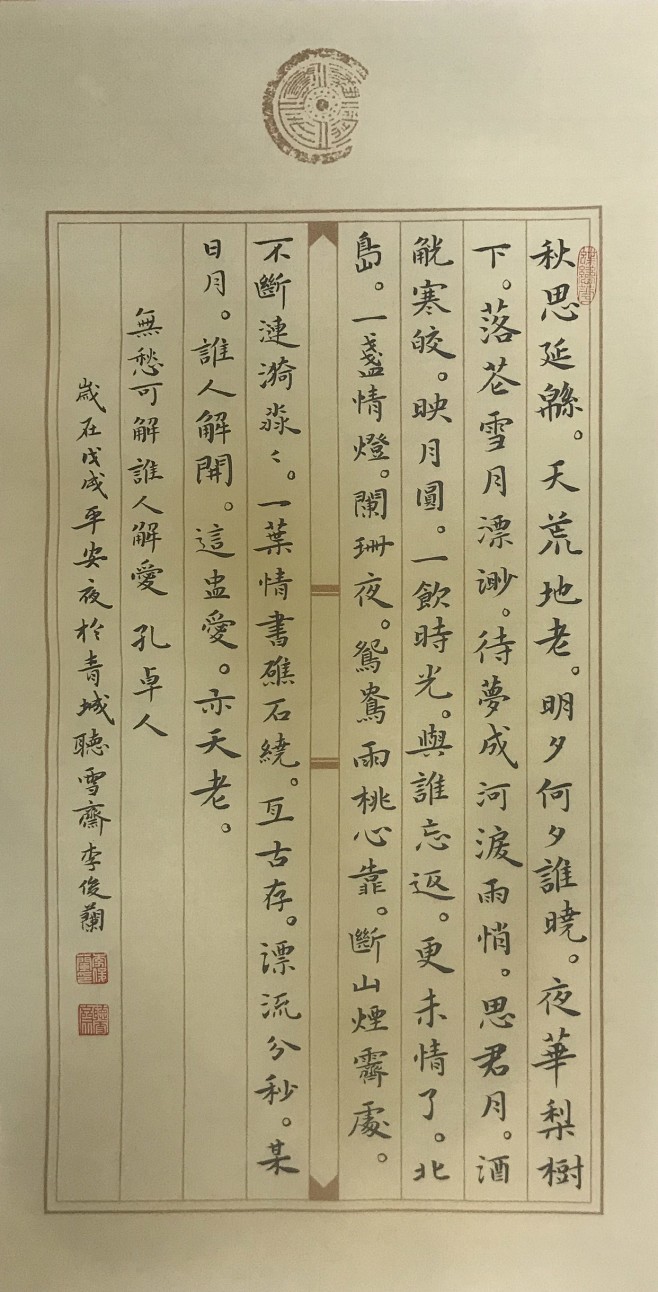 秋思延緜。天荒地老。明夕何夕誰曉。夜華梨樹
下。落苍雪月漂渺。待夢成河淚雨悄。思君月。酒
觥寒皎。映月圓。一飲時光。與誰忘返。更未情了。北
島。一盞情燈。闌珊夜。鴛鴦雨桃心靠。斷山煙霽處。
不斷漣漪淼〻。一葉情書礁石繞。亙古存。漂流分秒。某
日月。誰人解開。這蛊愛。亦天老。
無愁可解誰人解愛 孔卓人
歲在戊戌平安夜於青城聽雪齋李俊蘭